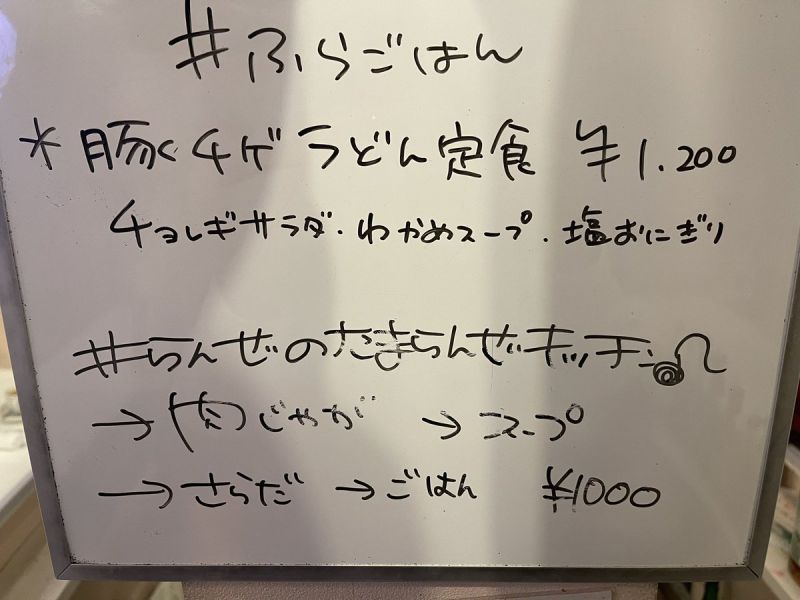 #ふらごはん
*豚チゲうどん定食 ¥1.200
チョレギサラダ.わかめスープ.塩おにぎり
#らんぜのだきらんぜキッチン
→肉じゃが →スープ
→さらだ →ごはん ¥1000